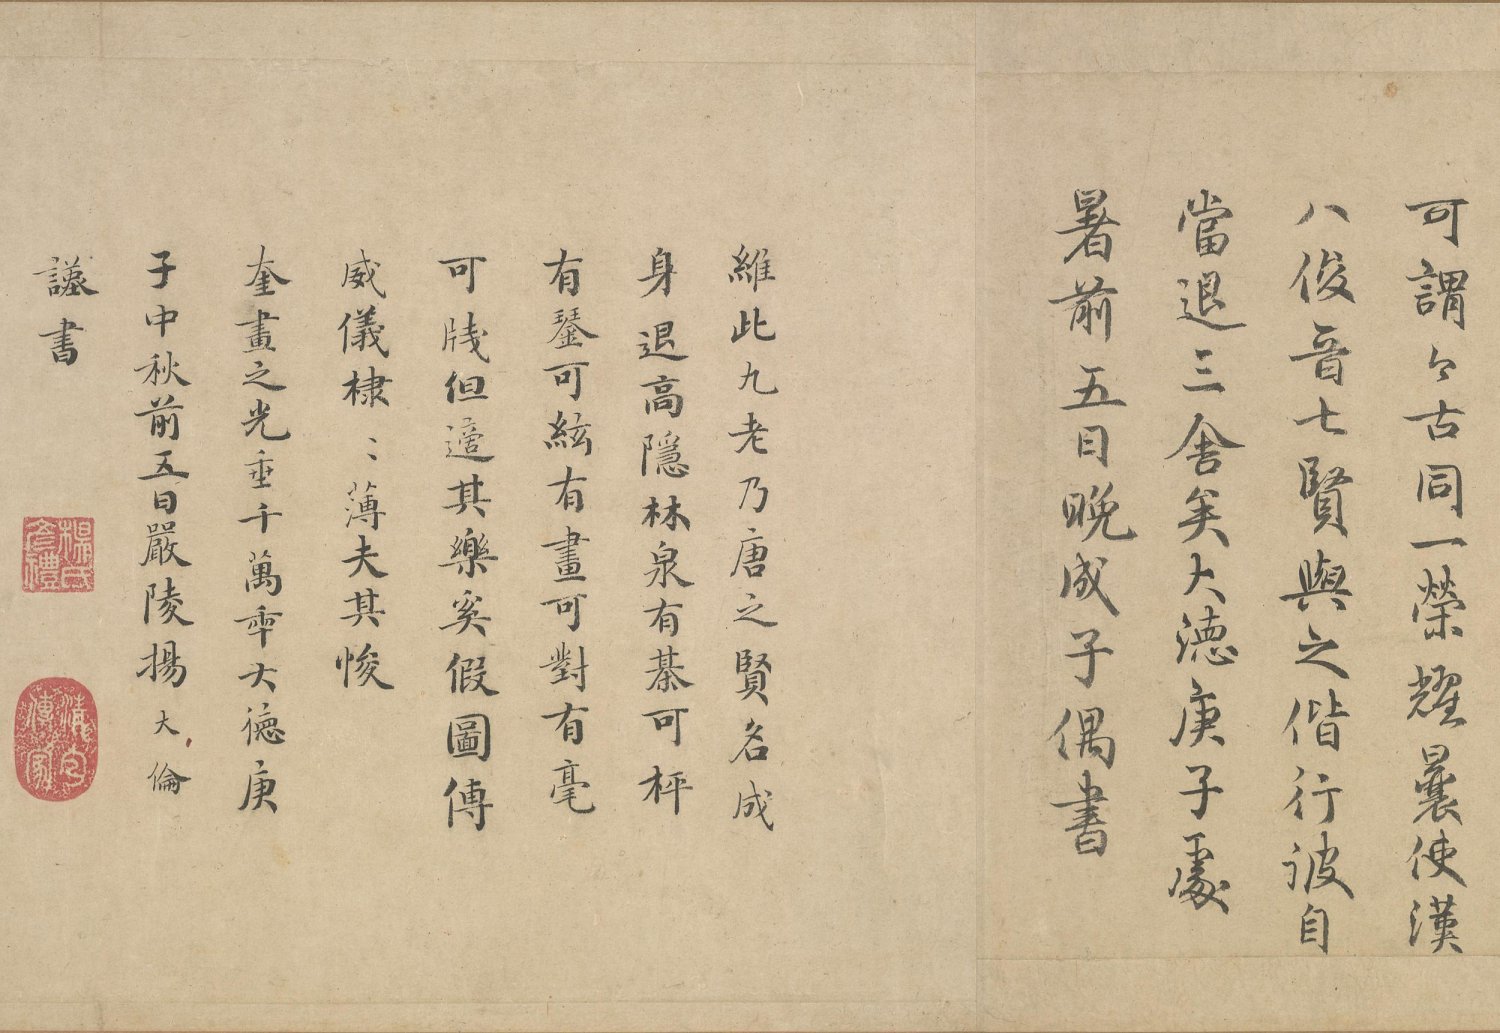 可謂今古同一榮耀曩使漢
八俊晉七賢與之偕行彼自
當退三舍矣大德庚子處
暑前五日晚成子偶書
維此九老乃唐之賢名成
身退高隱林泉有棊可枰
有琴可絃有畫可對有毫
可牋但適其樂奚假圖傳
威儀棣〻薄夫其悛
奎畫之光垂千萬年大德庚
子中秋前五日嚴陵楊大倫
謹書
楊氏彥禮
清白傳家